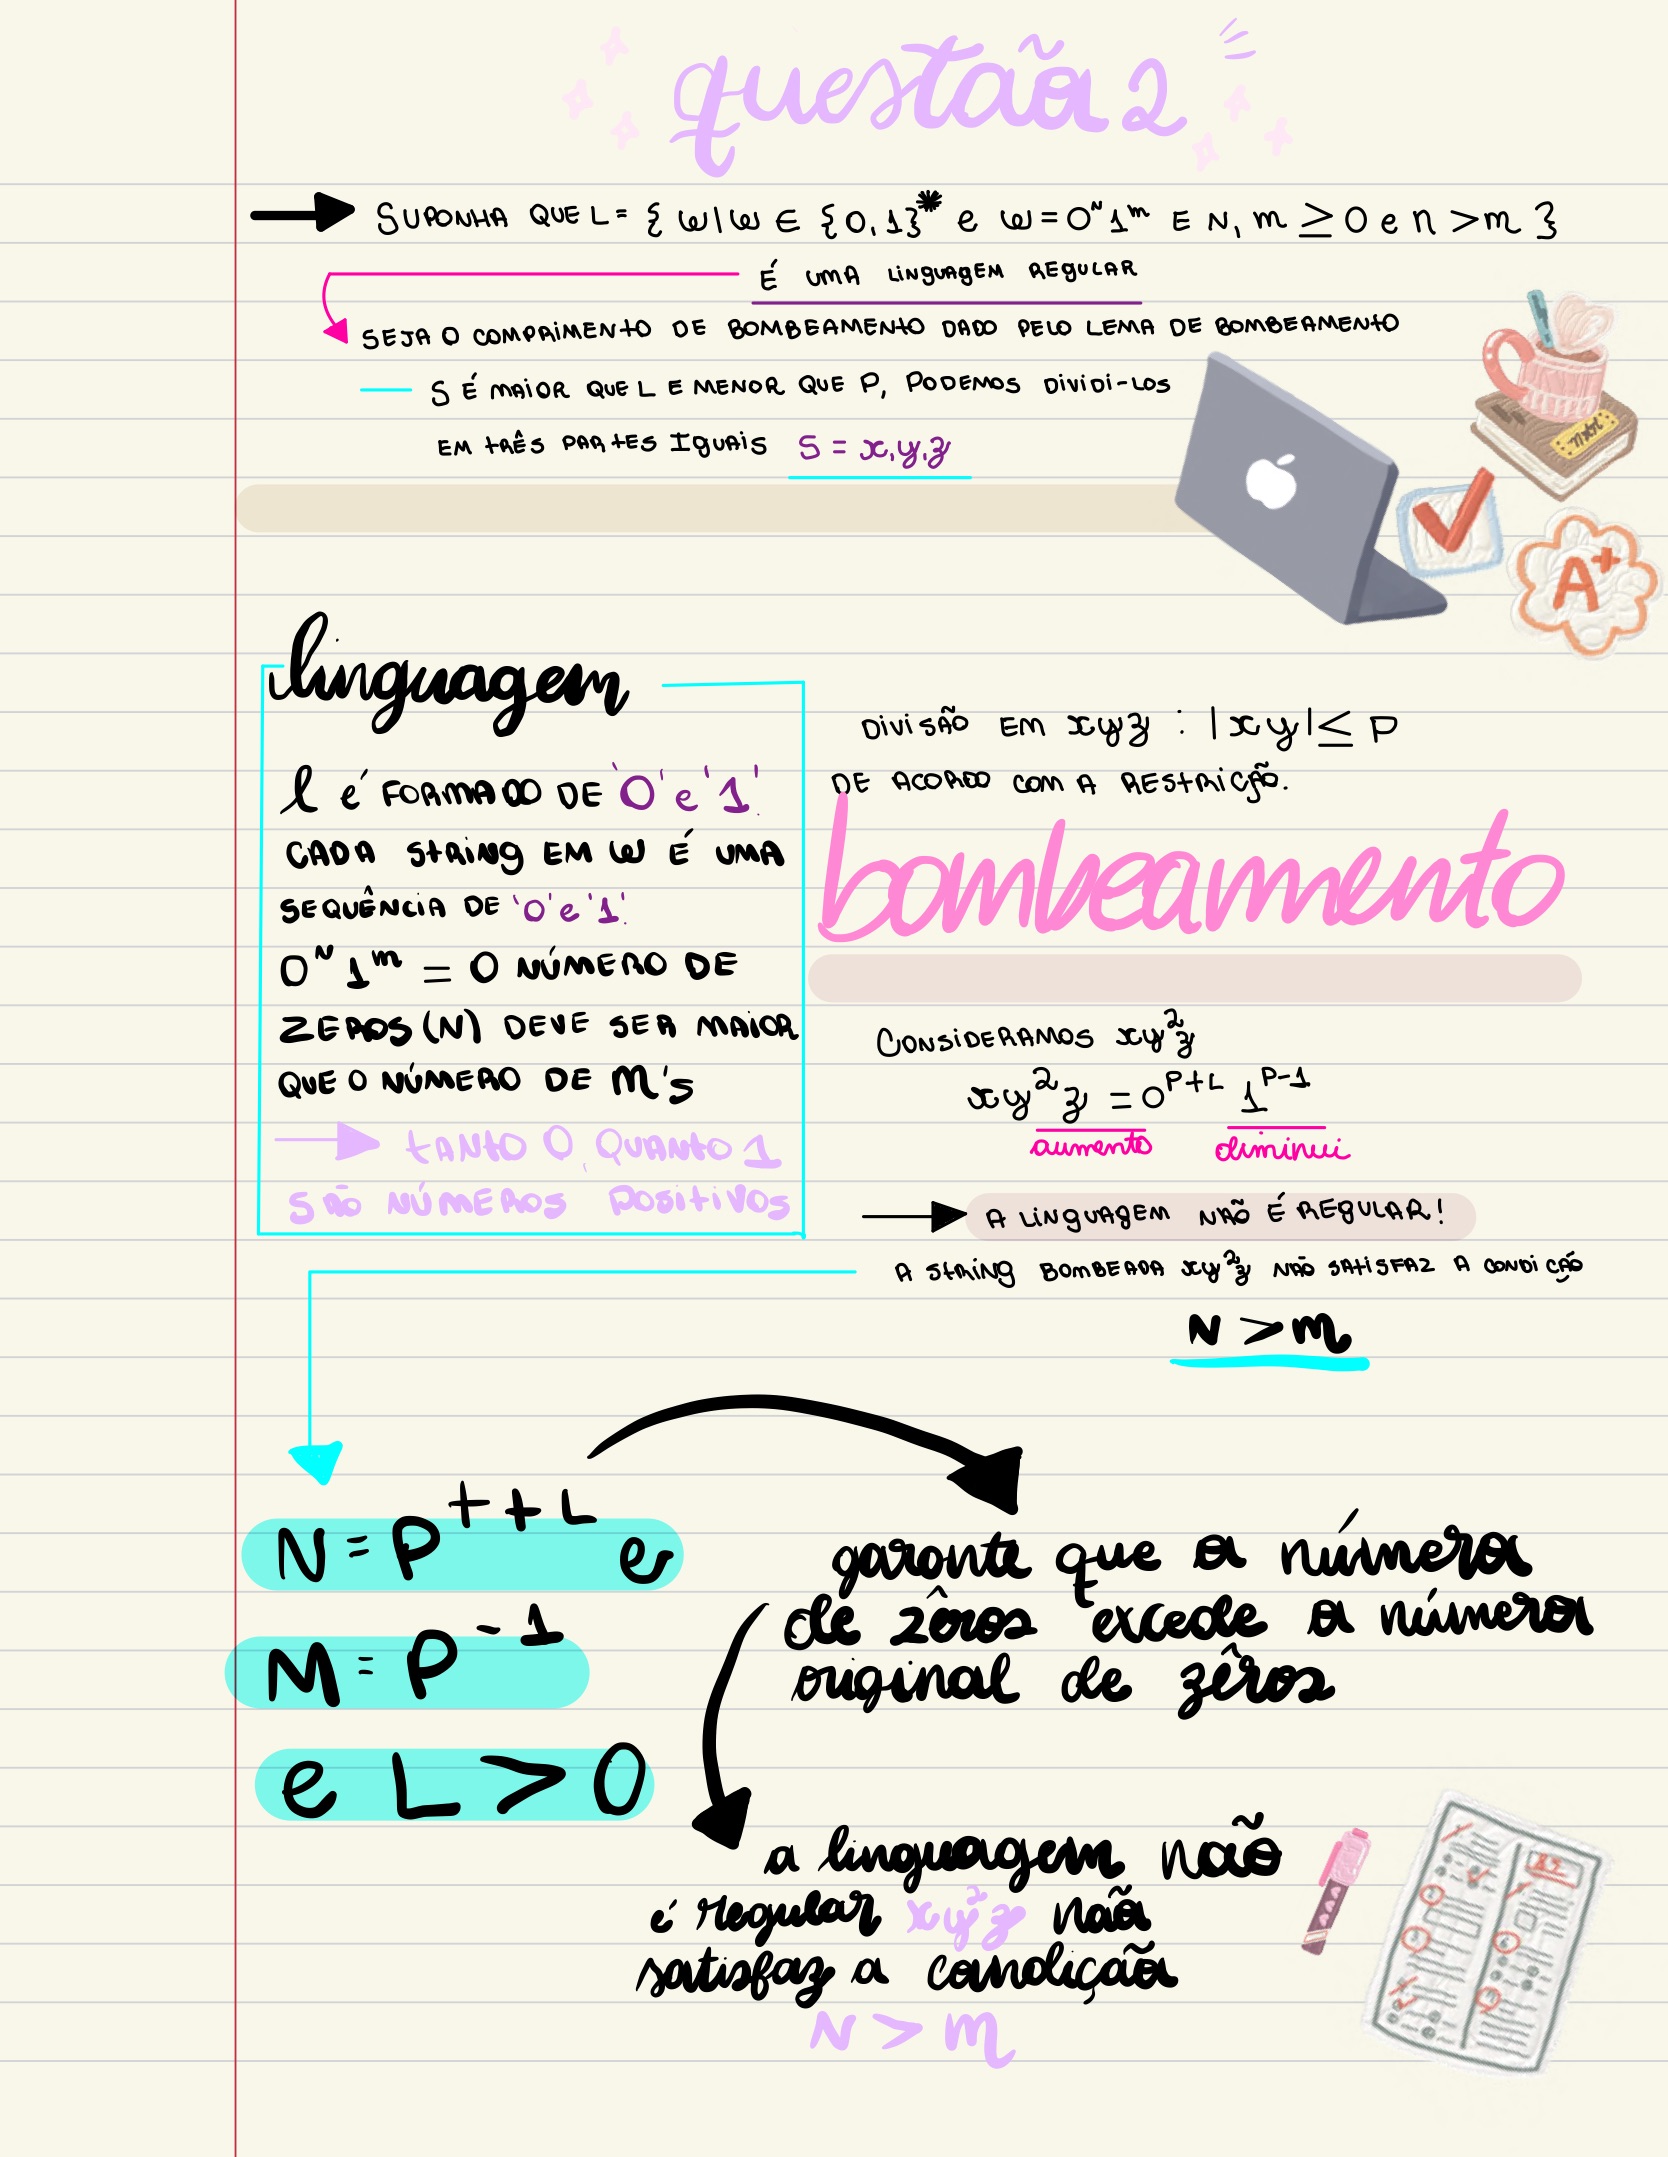 questão 2
SUPONHA QUE L = { w/w ∈ {0,1}* e w = 0ᴺ1ᵐ E N, m ≥ 0 e n > m }
É UMA LINGUAGEM REGULAR
SEJA O COMPRIMENTO DE BOMBEAMENTO DADO PELO LEMA DE BOMBEAMENTO
S É MAIOR QUE L E MENOR QUE P, PODEMOS DIVIDI-LOS
EM TRÊS PARTES IGUAIS S = x,y,z
linguagem
l é FORMADO DE '0' e '1'.
CADA STRING EM W É UMA
SEQUÊNCIA DE '0' e '1'.
0ᴺ 1ᵐ = O NÚMERO DE
ZEROS (N) DEVE SER MAIOR
QUE O NÚMERO DE M's
TANTO 0, QUANTO 1
SÃO NÚMEROS POSITIVOS
DIVISÃO EM xyz : |xy| ≤ P
DE ACORDO COM A RESTRIÇÃO.
bombeamento
CONSIDERAMOS xy²z
xy²z = 0ᴾ⁺ᴸ 1ᴾ⁻¹
aumento diminui
A LINGUAGEM NÃO É REGULAR!
A STRING BOMBEADA xy²z NÃO SATISFAZ A CONDIÇÃO
N > m
N = P⁺⁺ᴸ e
M = P⁻¹
e L > 0
garante que o número
de zêros excede o número
original de zêros
a linguagem não
é regular xy²z não
satisfaz a condição
N > m
A+